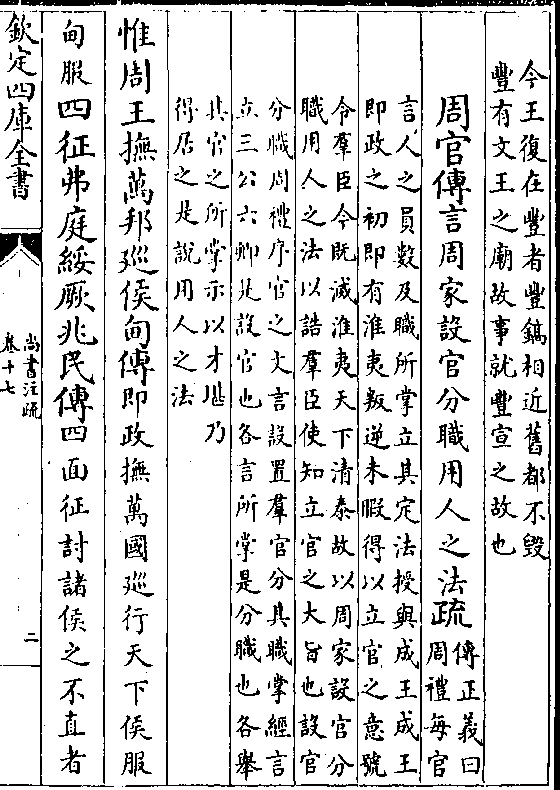 今王復在豐者豐鎬相近舊都不毀
豐有文王之廟故事就豐宣之故也
周官傳言周家設官分職用人之法疏
傳正義曰
周禮每官
言人之員數及職所掌立其定法授與成王成王
即政之初即有淮夷叛逆未暇得以立官之意號
令羣臣今既滅淮夷天下清泰故以周家設官分
職用人之法以誥羣臣使知立官之大旨也設官
分職周禮序官之文言設置羣官分其職掌經言
立三公六卿是設官也各言所掌是分職也各舉
其官之所掌示以才堪乃
得居之是說用人之法
惟周王撫萬邦巡侯甸傳即政撫萬國巡行天下侯服
甸服四征弗庭綏厥兆民傳四面征討諸侯之不直者
欽定四庫全書
尚書注疏
卷十七
二